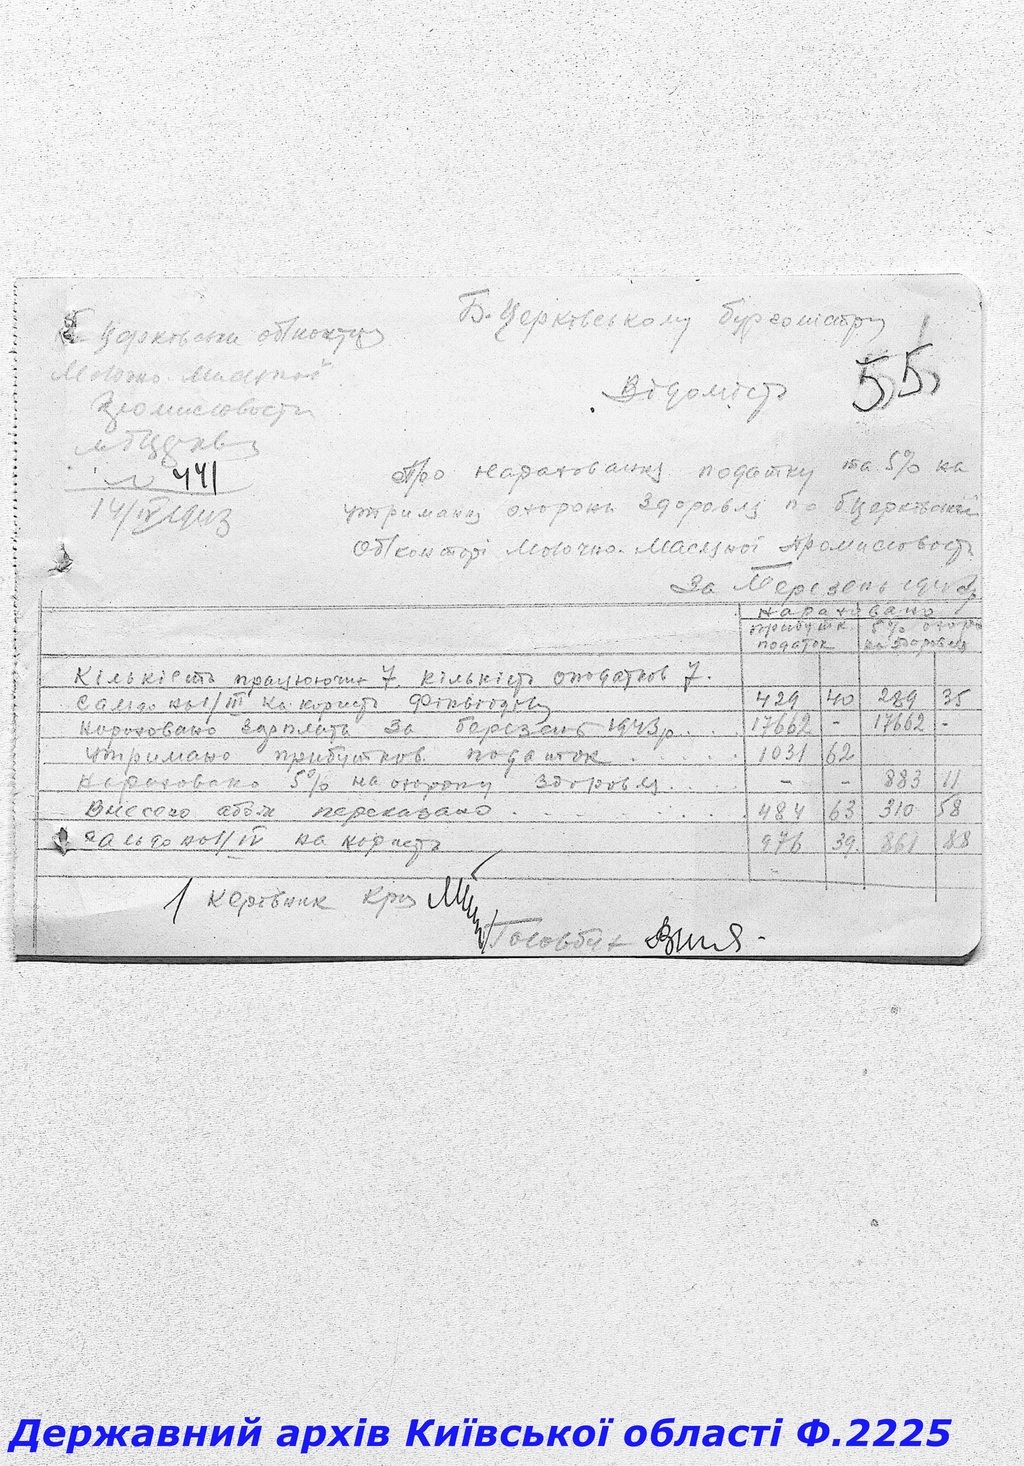 Б. Церковському бургомістру
Б. Церковська облконтора
Молочно Масляної
Промисловости
м. БЦерква
№ 441
14/IV 1943
Відомість
55
Про нарахування податку та 5% на
утриманя охорони Здоровля по БЦерковській
Облконторі Молочно-Масляної Промисловости
За Березень 1943р
Нараховано
прибутк. податок
5% охор. на здоровля
Кількість працюючих 7. Кількість оподатков 7.
Сальдо на 1/III на користь Фінвідділу 429 40 289 35
Нараховано Зарплати За березень 1943р. 17662 - 17662 -
Утримано прибутков. податок 1031 62
Нараховано 5% на охорону здоровля - - 883 11
Внесено або ж переказано 484 63 310 58
Сальдо на 1/IV на користь 976 39 861 88
Керівник
Головбух
Державний архів Київської області Ф.2225